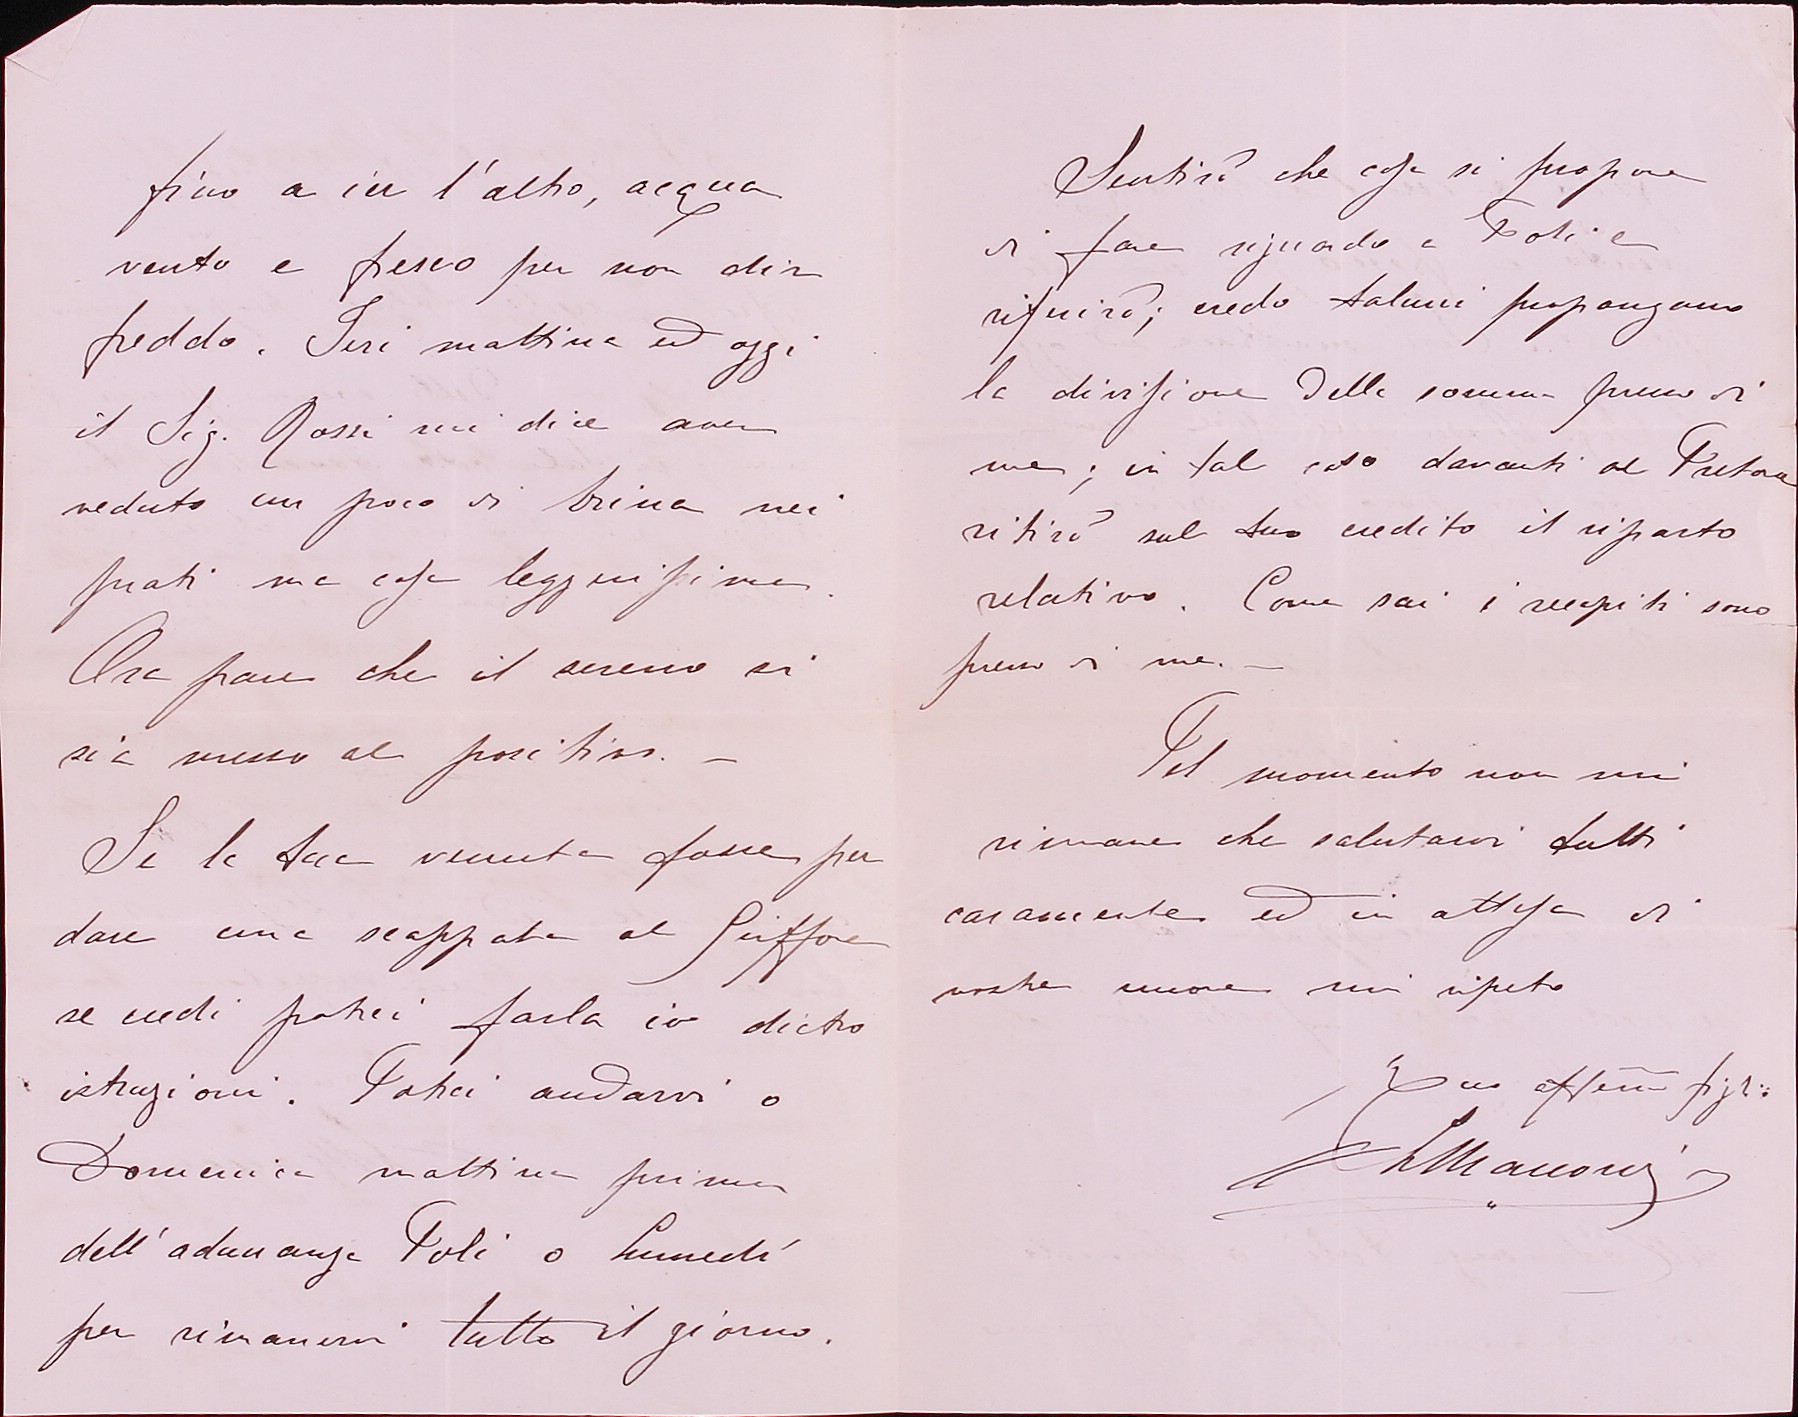 fino a ier l'altro, acqua
vento e fresco per non dir
freddo. Ieri mattina ed oggi
il Sig. Rossi mi dice aver
veduto un poco di brina nei
prati ma cosa leggerissima.
Ora pare che il sereno si
sia messo al positivo. —
Se la tua venuta fosse per
dare una scappata al Griffone
se credi potrei farla io dietro
istruzioni. Potrei andarvi o
Domenica mattina prima
dell'adunanza Poli o Lunedì
per rimanervi tutto il giorno.
Sentirò che cosa si propone
di fare riguardo a Poli e
riferirò; credo taluni propongano
la divisione della somma presso di
me; in tal caso davanti al Pretore
ritirò sul tuo credito il riparto
relativo. Come sai i recapiti sono
presso di me. —
Pel momento non mi
rimane che salutarvi tutti
caramente ed in attesa di
vostre nuove mi ripeto
Tuo affem̃o figlio